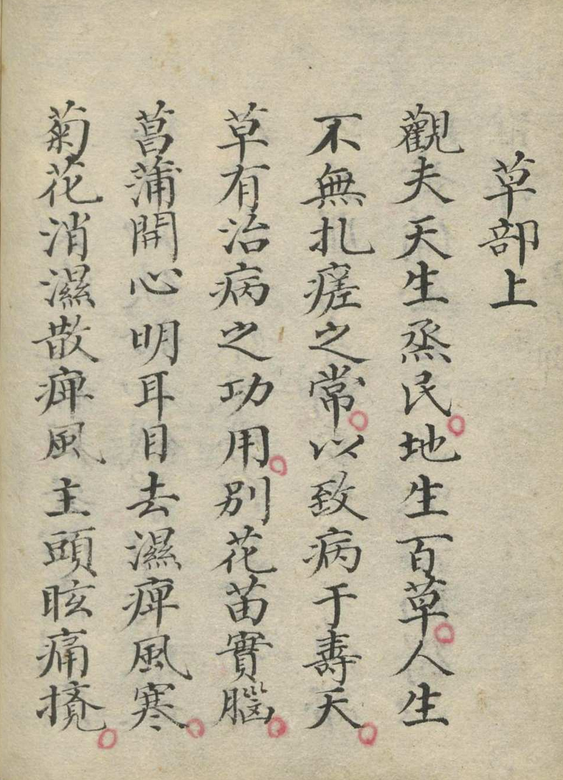 草部上
觀夫天生烝民地生百草人生
不無扎瘥之常以致病于壽夭
草有治病之功用別花苗實腦
菖蒲開心明耳目去濕痺風寒
菊花消濕散痺風主頭眩痛擾